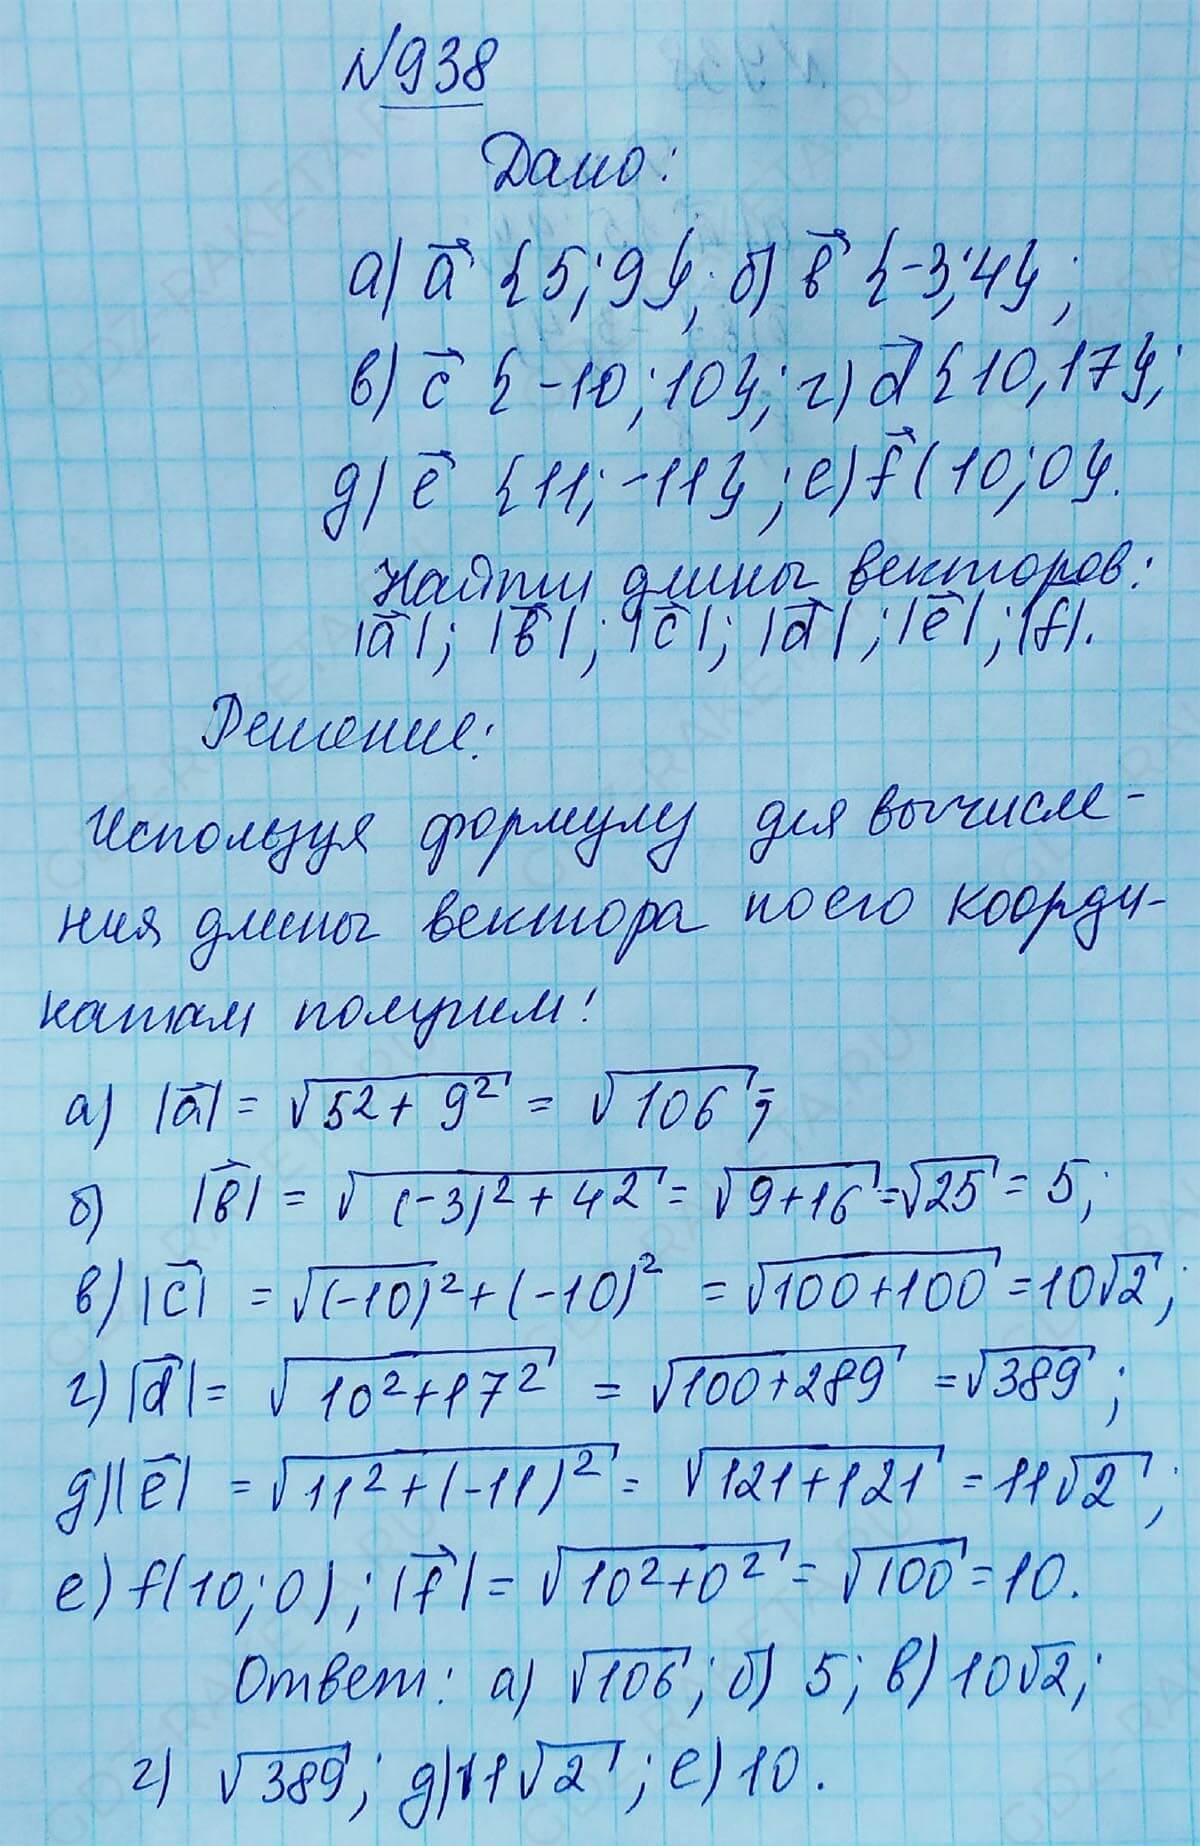 №938
Дано:
а) a⃗ {5; 9}; б) в⃗ {-3; 4};
в) c⃗ {-10; 10}; г) d⃗ {10, 17};
д) e⃗ {11; -11}; е) f⃗ (10; 0}.
Найти длины векторов:
|a⃗|; |в⃗|; |c⃗|; |d⃗|; |e⃗|; |f|.
Решение:
Используя формулу для вычисле-
ния длины вектора по его коорди-
натам получим:
а) |a⃗| = √(5² + 9²) = √106;
б) |в⃗| = √((-3)² + 4²) = √(9+16) = √25 = 5;
в) |c⃗| = √(-10)² + (-10)² = √(100+100) = 10√2;
г) |d⃗| = √(10² + 17²) = √(100+289) = √389;
д) |e⃗| = √(11² + (-11)²) = √(121+121) = 11√2;
е) f(10; 0); |f⃗| = √(10²+0²) = √100 = 10.
Ответ: а) √106; б) 5; в) 10√2;
г) √389; д) 11√2; е) 10.
GDZ-RAKETA.RU